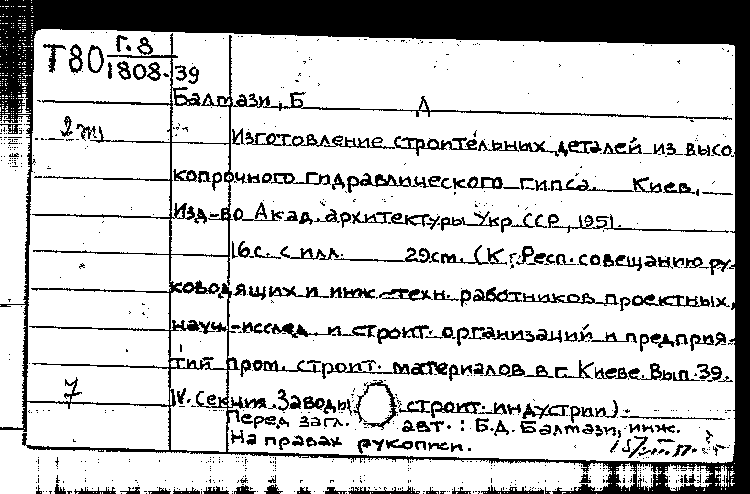 Т80 Г.8
1808-39
Балтази, Б Д
2 Изготовление строительных деталей из высо
копрочного гидравлического гипса. Киев,
Изд-во Акад. архитектуры Укр ССР, 1951.
16с. с илл. 29см. (К Респ. совещанию ру-
ководящих и инж.-техн. работников проектных,
науч.-исслед. и строит. организаций и предприя-
тий пром. строит. материалов в г. Киеве. Вып. 39.
7 IV. Секция. Заводы строит. индустрии).
Перед загл. авт.: Б.Д. Балтази, инж.
На правах рукописи.